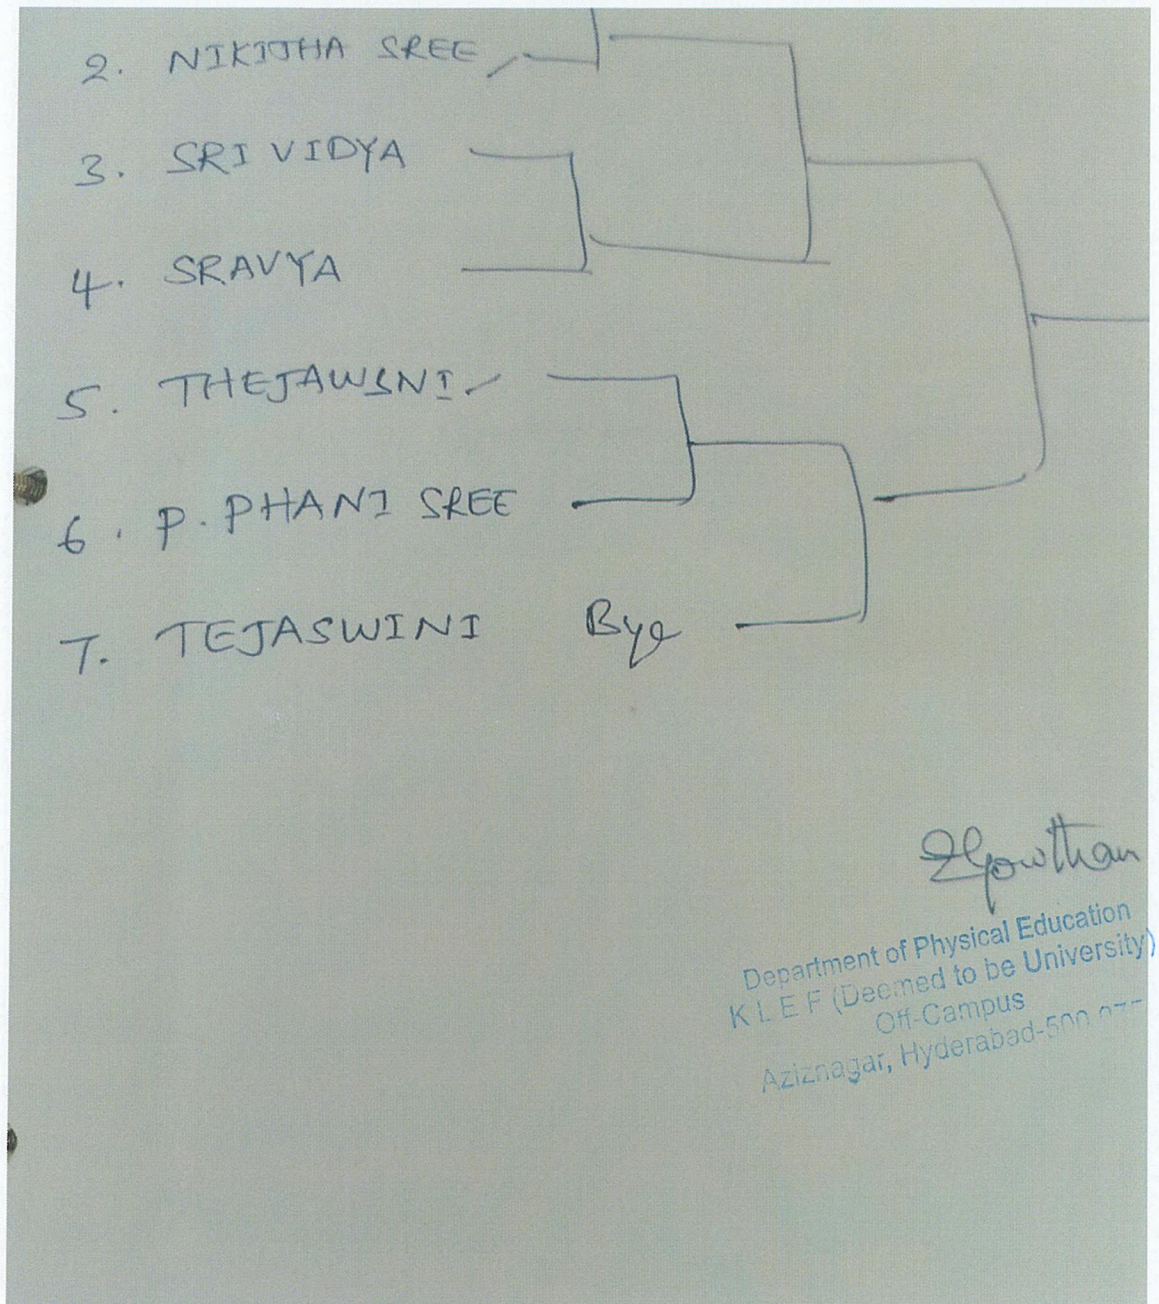 2. NIKITHA SREE
3. SRI VIDYA
4. SRAVYA
5. THEJAWSNI
6. P. PHANI SREE
7. TEJASWINI Bye
Department of Physical Education
K L E F (Deemed to be University)
Off-Campus
Aziznagar, Hyderabad-500